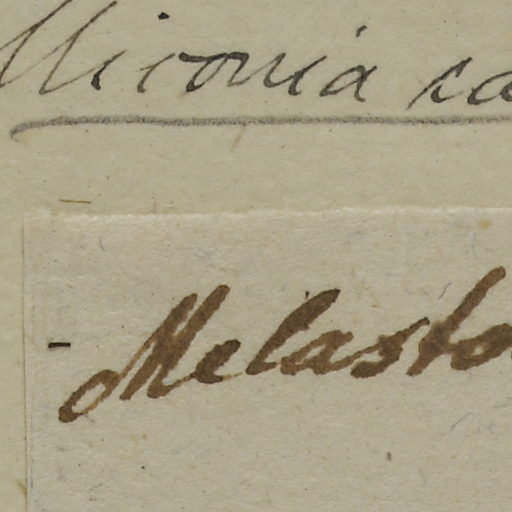 Miconia ca
Melasto